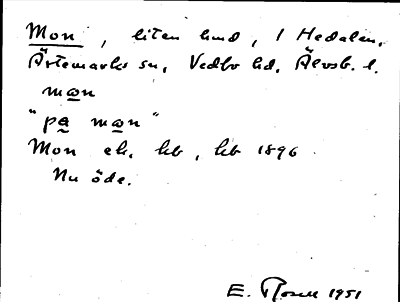 Mon, liten lund, i Hedalen,
Ärtemarks sn, Vedbo hd, Älvsb. l.
mọn
"pa mọn"
Mon ek. kb, kb 1896
Nu öde.
E. Rosell 1951